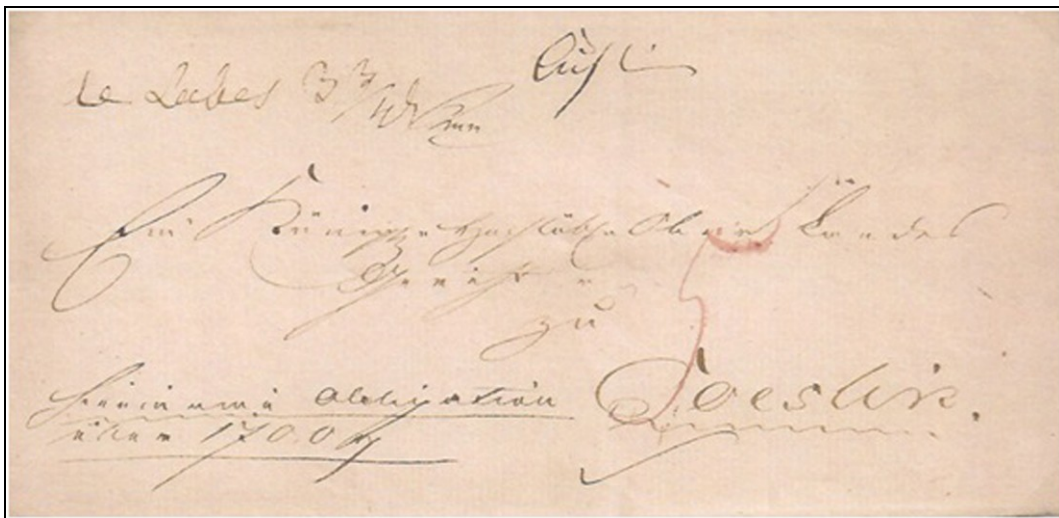 de Labes 3 3/4
Ein Königl. Hochlöbl. Ober Landes
Gericht
zu
Coeslin.
Hierin eine Obligation
über 1700